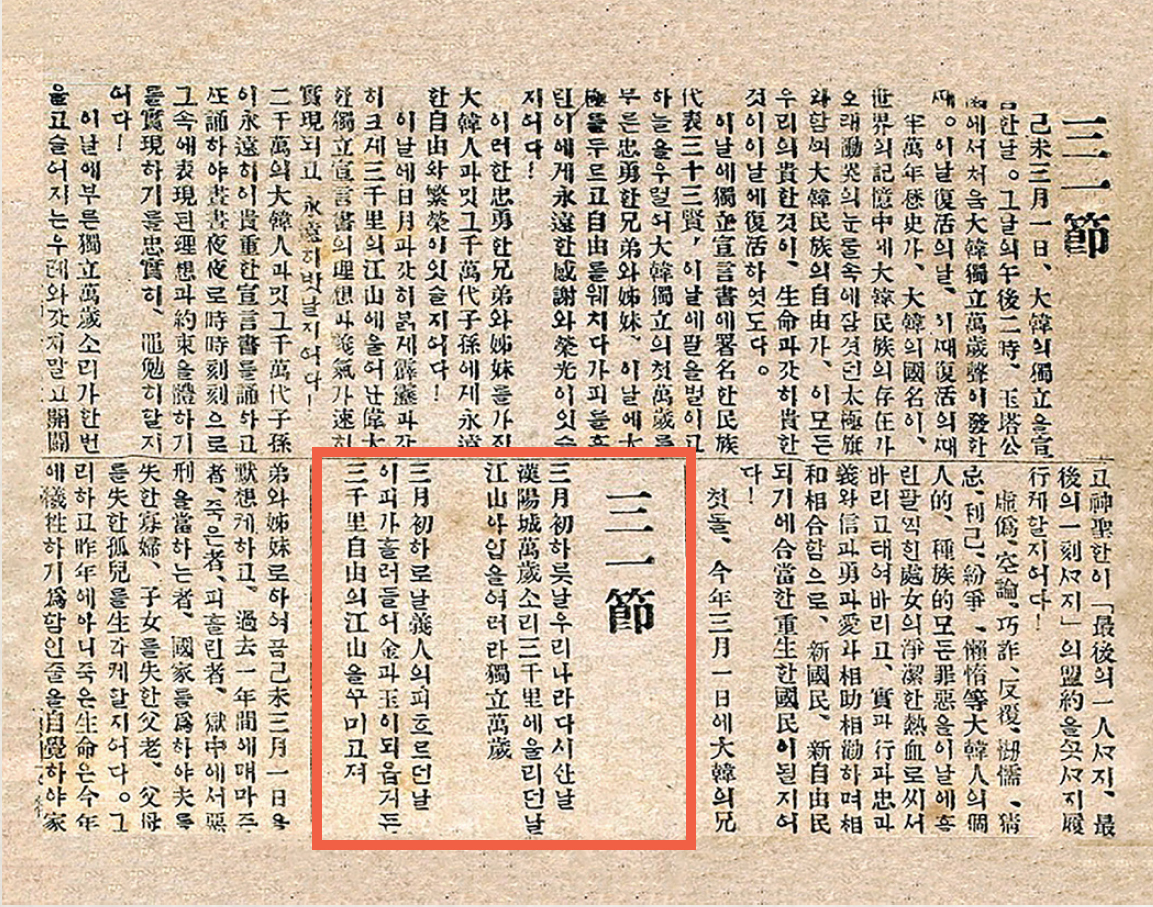 三一節
己未三月一日、大韓의獨立을宣
言한날。그날의午後二時、玉塔公
園에서처음大韓獨立萬歲聲이發한
때。이날復活의날、이때復活의때
半萬年歷史가、大韓의國名이、
世界의記憶中에大韓民族의存在가
오래動哭의눈물속에잠겻던太極旗
와함께大韓民族의自由가、이모든
우리의貴한것이、生命과갓히貴한
것이이날에復活하엿도다。
이날에獨立宣言書에署名한民族
代表三十三賢,이날에팔을벌이고
하늘을우럴어大韓獨立의첫萬歲를
부른忠勇한兄弟와姊妹、이날에太
極를두르고自由를웨치다가피를흘
린이에게永遠한感謝와榮光이잇슬
지어다!
이러한忠勇한兄弟와姊妹를가진
大韓人과밋그千萬代子孫에게永遠
한自由와繁榮이잇슬지어다!
이날에日月과갓히붉게霹靂과갓
히크게三千里의江山에울어난偉大
한獨立宣言書의理想과義氣가速히
實現되고、永遠지발날지어다!
二千萬의大韓人과밋그千萬代子孫
이永遠히이貴重한宣言書를誦하고
또誦하야晝晝夜夜로時時刻刻으로
그속에表現된理想과約束을體하기
를實現하기를忠實히、黽勉히할지
어다!
이날에부른獨立萬歲소리가한번
울고슬어지는우레와갓지말고
고神聖한이「最後의一人지、最
後의一刻지」의盟約을지履
行케할지어다!
虛僞、空論、巧詐、反覆、懦、猜
忌、利己、紛爭、懶惰等大韓人의個
人的、種族的모든罪惡을이날에흘
린팔히處女의淨潔한熱血로씨서
바리고태여바리고、實과行과忠과
義와信과勇과愛와相助相勸하며相
和相合함으로、新國民、新自由民
되기에合當한重生한國民이될지어
다!
첫돌、今年三月一日에大韓의兄
三一節
三月初하룻날우리나라다시산날
漢陽城萬歲소리三千里에울리던날
江山아입을여러라獨立萬歲
三月初하로날義人의피흐르던날
이피가흘러들어金과玉이되옵거든
三千里自由의江山을꾸미고져
弟와姊妹로하여곰己未三月一日을
默想케하고、過去一年間에매마즌
者、죽은者、피흘린者、獄中에서惡
刑을當하는者、國家를爲하야夫를
失한寡婦、子女를失한父老、父母
를失한孤兒를生각케할지어다。그
리하고昨年에아니죽은生命은今年
에犧牲하기爲함인줄을自覺하야家